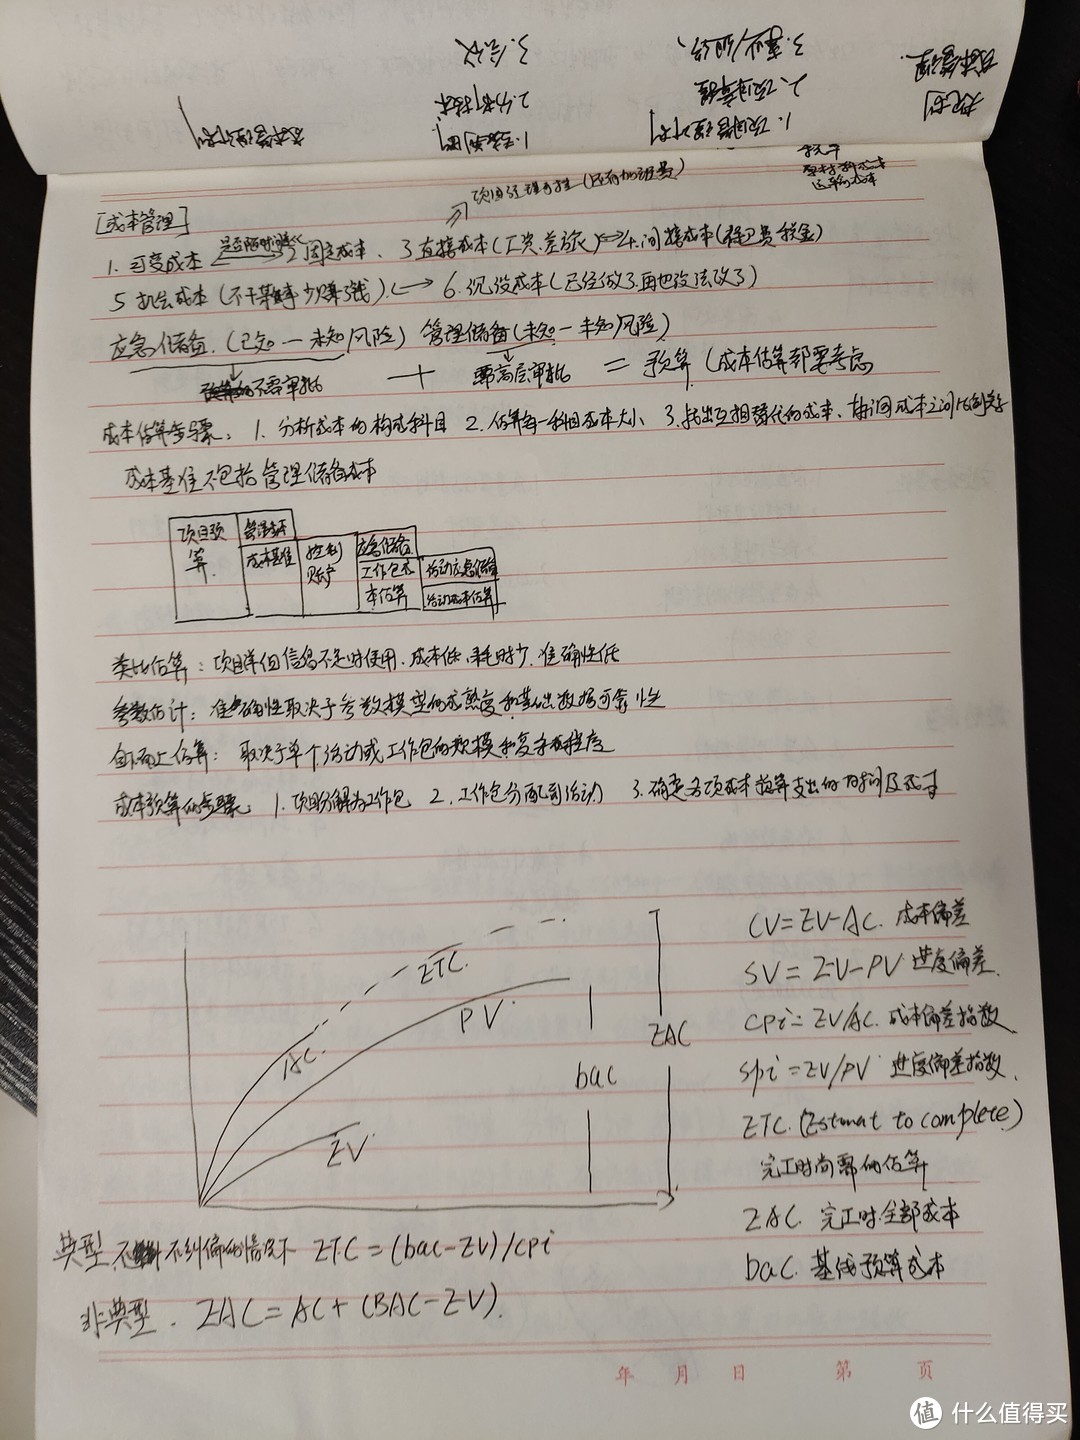 规划
成本管理
1.项目管理计划
2.项目章程
3.事业/组织、
1.专家判断
2.分析技术
3.会议
成本管理计划
原材料成本
运输成本
项目经理可控(还有加班费)
[成本管理]
1.可变成本 是否随时间 2固定成本、3直接成本(工资.差旅)↔4.间接成本(税金)
5机会成本(不干某事少赚了钱)↔6.沉没成本(已经做了再也没法改了)
应急储备.(已知—未知风险) 管理储备(未知—未知风险)
不需审批 + 需高层审批 = 预算(成本估算都要考虑
成本估算步骤:1.分析成本的构成科目 2.估算每一科目成本大小 3.找出互相替代的成本、协调成本之间比例关系
成本基准不包括管理储备成本
项目预算
管理储备
成本基准
控制账户
应急储备
工作包成本估算
活动应急储备
活动成本估算
类比估算:项目详细信息不足时使用.成本低.耗时少.准确性低
参数估计:准确性取决于参数模型的成熟度和基础数据可靠性
自下而上估算:取决于单个活动或工作包的规模和复杂程度
成本预算的步骤 1.项目分解为工作包 2.工作包分配到活动 3.确定各项成本预算支出的时间及
ETC.
AC.
PV.
EV.
bac
EAC
CV=EV-AC.成本偏差
SV=EV-PV 进度偏差.
cpi=EV/AC.成本偏差指数
spi=EV/PV 进度偏差指数.
ETC.(Estmat to complete)
完工时尚需的估算
EAC.完工时.全部成本
bac.基线预算成本
典型.不纠偏的情况下 ETC=(bac-EV)/cpi
非典型.EAC=AC+(BAC-EV).
年 月 日 第 页
值 什么值得买